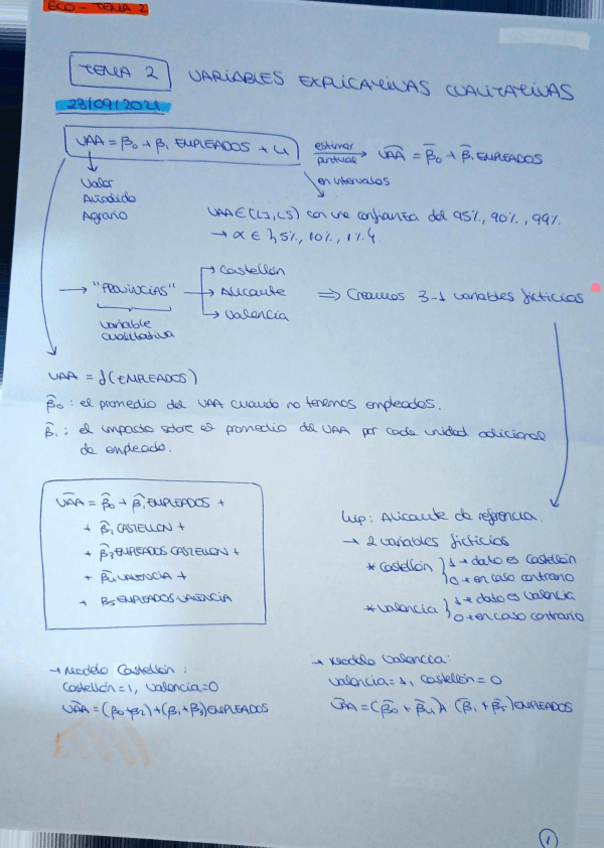 ECO - TEMA 2
TEMA 2 VARIABLES EXPLICATIVAS CUALITATIVAS
23/09/2021
VAA = β₀ + β₁ EMPLEADOS + u
estimar puntual → V̂AA = β̂₀ + β̂₁ EMPLEADOS
Valor
Añadido
Agrario
en intervalos
VAA ∈ (LI, LS) con una confianza del 95%, 90%, 99%.
→ α ∈ {5%, 10%, 1%}
→ "PROVINCIAS"
variable
cualitativa
→ Castellón
→ Alicante
→ Valencia
⇒ Creamos 3-1 variables ficticias
VAA = f(EMPLEADOS)
β̂₀: el promedio del VAA cuando no tenemos empleados.
β̂₁: el impacto sobre el promedio del VAA por cada unidad adicional
de empleado.
V̂AA = β̂₀ + β̂₁ EMPLEADOS +
+ β̂₂ CASTELLON +
+ β̂₃ EMPLEADOS CASTELLON +
+ β̂₄ VALENCIA +
+ β₅ EMPLEADOS VALENCIA
Alicante de referencia.
→ 2 variables ficticias
* Castellón } 1 → dato es Castellón
0 → en caso contrario
* Valencia } 1 → dato es Valencia
0 → en caso contrario
→ Modelo Castellón:
Castellón = 1, Valencia = 0
V̂AA = (β₀+β₂) + (β₁+β₃) EMPLEADOS
→ Modelo Valencia:
Valencia = 1, Castellón = 0
V̂AA = (β̂₀ + β̂₄) + (β̂₁ + β̂₅) EMPLEADOS
1